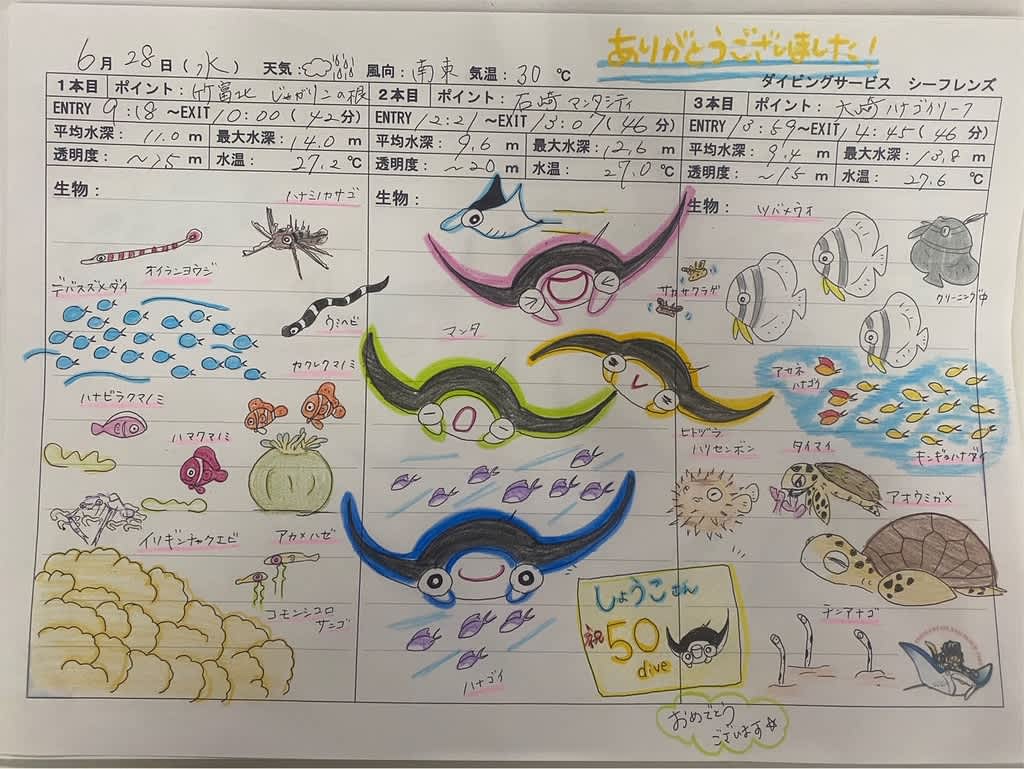 ありがとうございました!
6月28日(水) 天気: 風向:南東 気温:30℃
ダイビングサービス シーフレンズ
1本目 ポイント:竹富北 じゃがリコの根
ENTRY 9:18~EXIT 10:00(42分)
平均水深:11.0m 最大水深:14.0m
透明度:~15m 水温:27.2℃
生物:
ハナミノカサゴ
オイランヨウジ
デバスズメダイ
ウミヘビ
カクレクマノミ
ハナビラクマノミ
ハマクマノミ
イソギンチャクエビ
アカメハゼ
コモンシコロ
サンゴ
2本目 ポイント:石崎 マンタシティ
ENTRY 12:21~EXIT 13:07(46分)
平均水深:9.6m 最大水深:12.6m
透明度:~20m 水温:27.0℃
生物:
マンタ
ハナゴイ
3本目 ポイント:大崎 ハナゴイリーフ
ENTRY 13:59~EXIT 14:45(46分)
平均水深:9.4m 最大水深:13.8m
透明度:~15m 水温:27.6℃
生物:
ツバメウオ
クリーニング中
アカネ
ハナゴイ
キンギョハナダイ
ヒトヅラ
ハリセンボン
タイマイ
アオウミガメ
チンアナゴ
しょうこさん
祝
50
dive
おめでとう
ございます☆